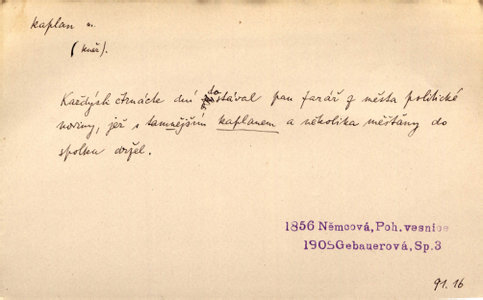 kaplan m.
(kněz).
Každých čtrnácte dní dostával pan farář z města politické
noviny, jež s tamnějším kaplanem a několika měšťany do
spolku držel.
1856 Němcová, Poh. vesnice
1905 Gebauerová, Sp.3
91.16